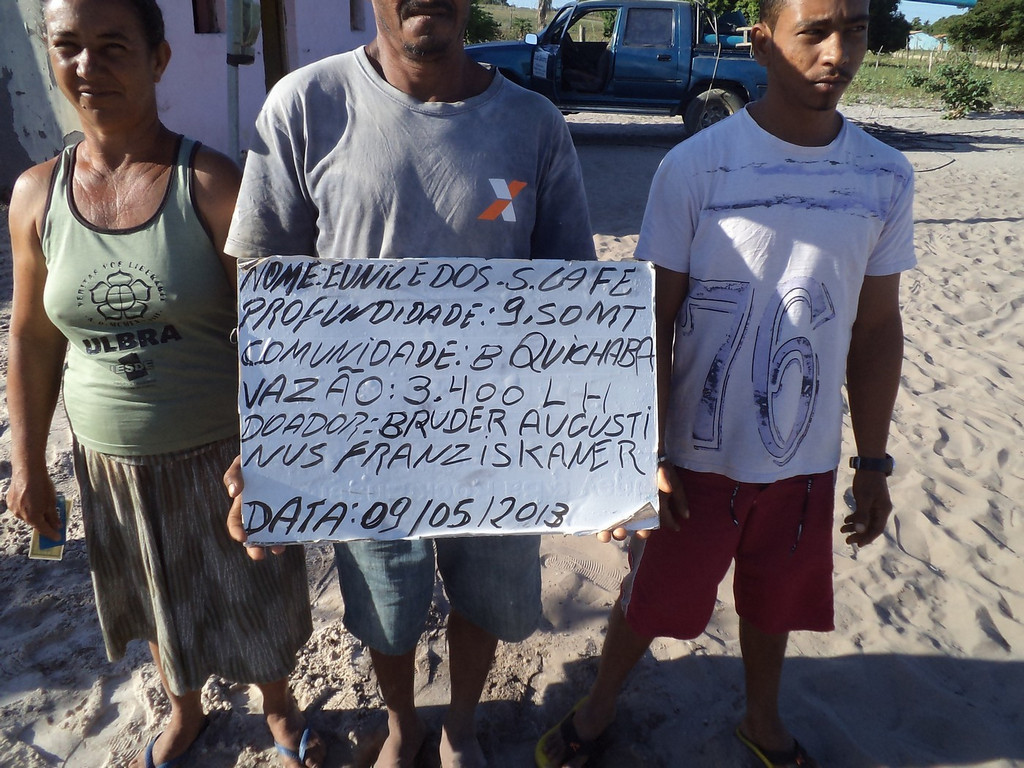 NOME: EUNICE DOS. S. CAFE
PROFUNDIDADE: 9,50MT
COMUNIDADE: B QUICHABA
VAZÃO: 3.400 L H
DOADOR:BRUDER AUGUSTI
NUS FRANZISKANER
DATA: 09/05/2013
ULBRA
DESDE
76